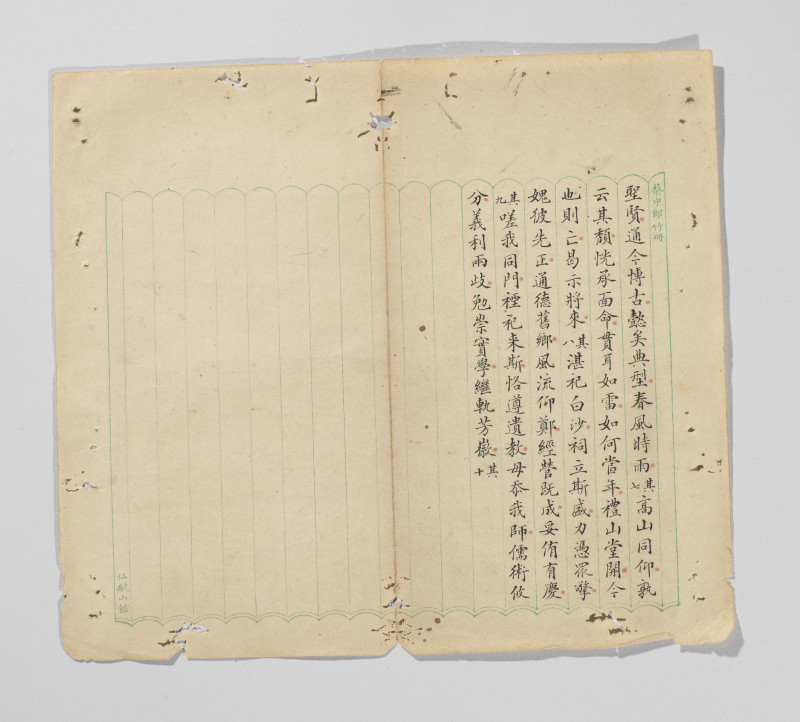 蔡中郎竹冊
聖賢通今博古懿矣典型春風時雨其七高山同仰孰
云其頽恍承面命貫耳如雷如何當年禮山堂開今
也則亡曷示將來其八湛祀白沙祠立斯感力憑眾擎
媿彼先正通德舊鄉風流仰鄭經營既成妥侑有慶
其九嗟我同門禋祀来斯恪遵遺教毋忝我師儒術攸
分義利兩歧勉崇實學繼軌芳徽其十
仙館